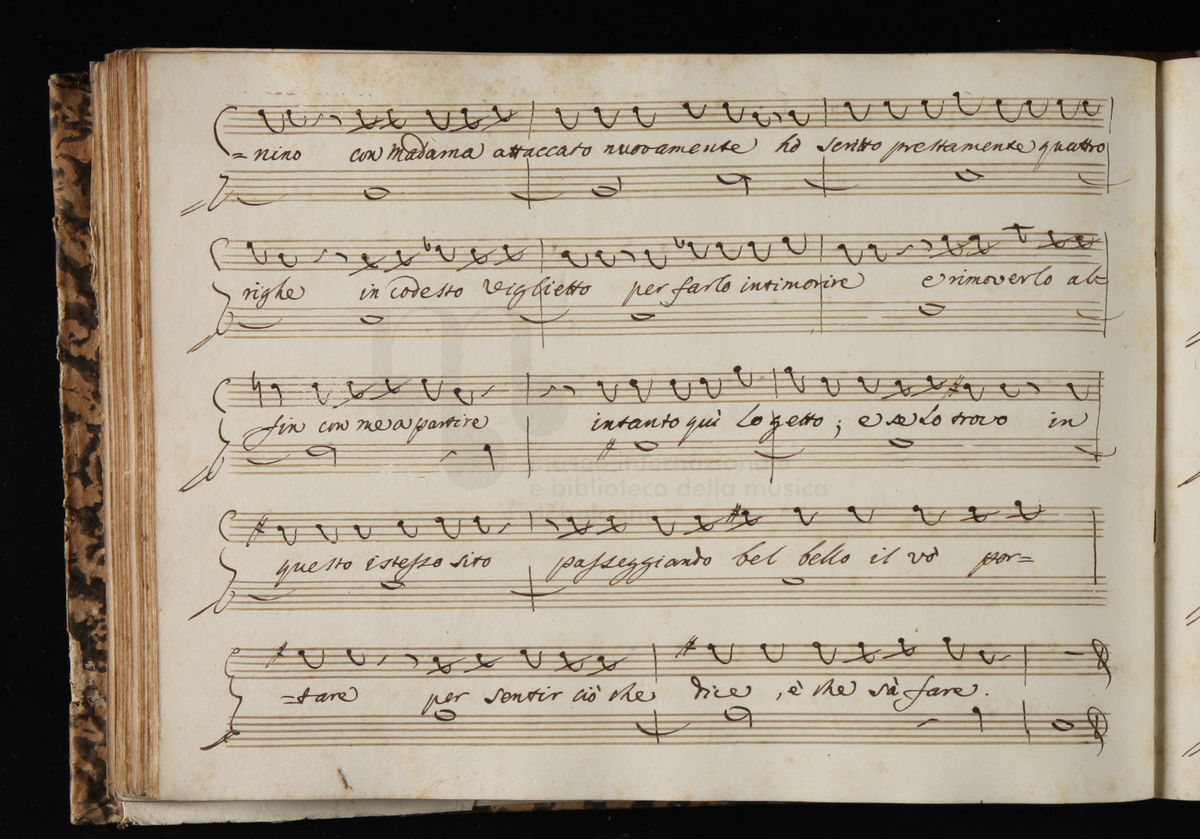 =nino con Madama attaccato nuovamente hò scritto prestamente quattro
righe in codesto viglietto per farlo intimorire e rimoverlo al=
fin con me a partire intanto quì lo getto; e se lo trovo in
questo istesso sito passeggiando bel bello il vò por=
=tare per sentir ciò che dice, è che sà fare.
museo internazionale
e biblioteca della musica